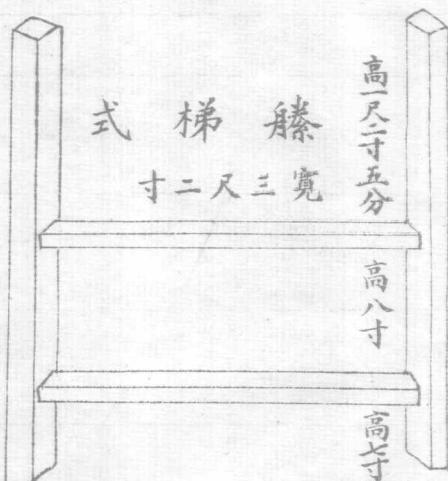 縢梯式
寬三尺二寸
高一尺二寸五分
高八寸
高七寸